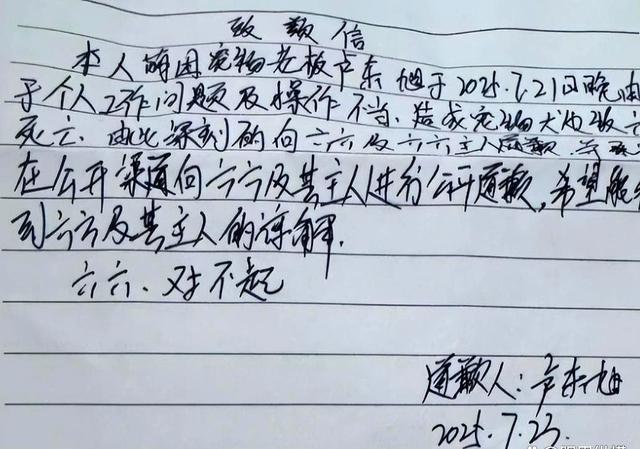 致歉信
本人萌国宠物老板卢东旭于2025.7.21日晚由
于个人工作问题及操作不当,造成宠物犬出现六
死亡.由此深刻的向六六及六六主人道歉.
在公开渠道向六六及其主人进行公开道歉,希望能
到六六及其主人的谅解.
六六、对不起
道歉人:卢东旭
2025.7.23.